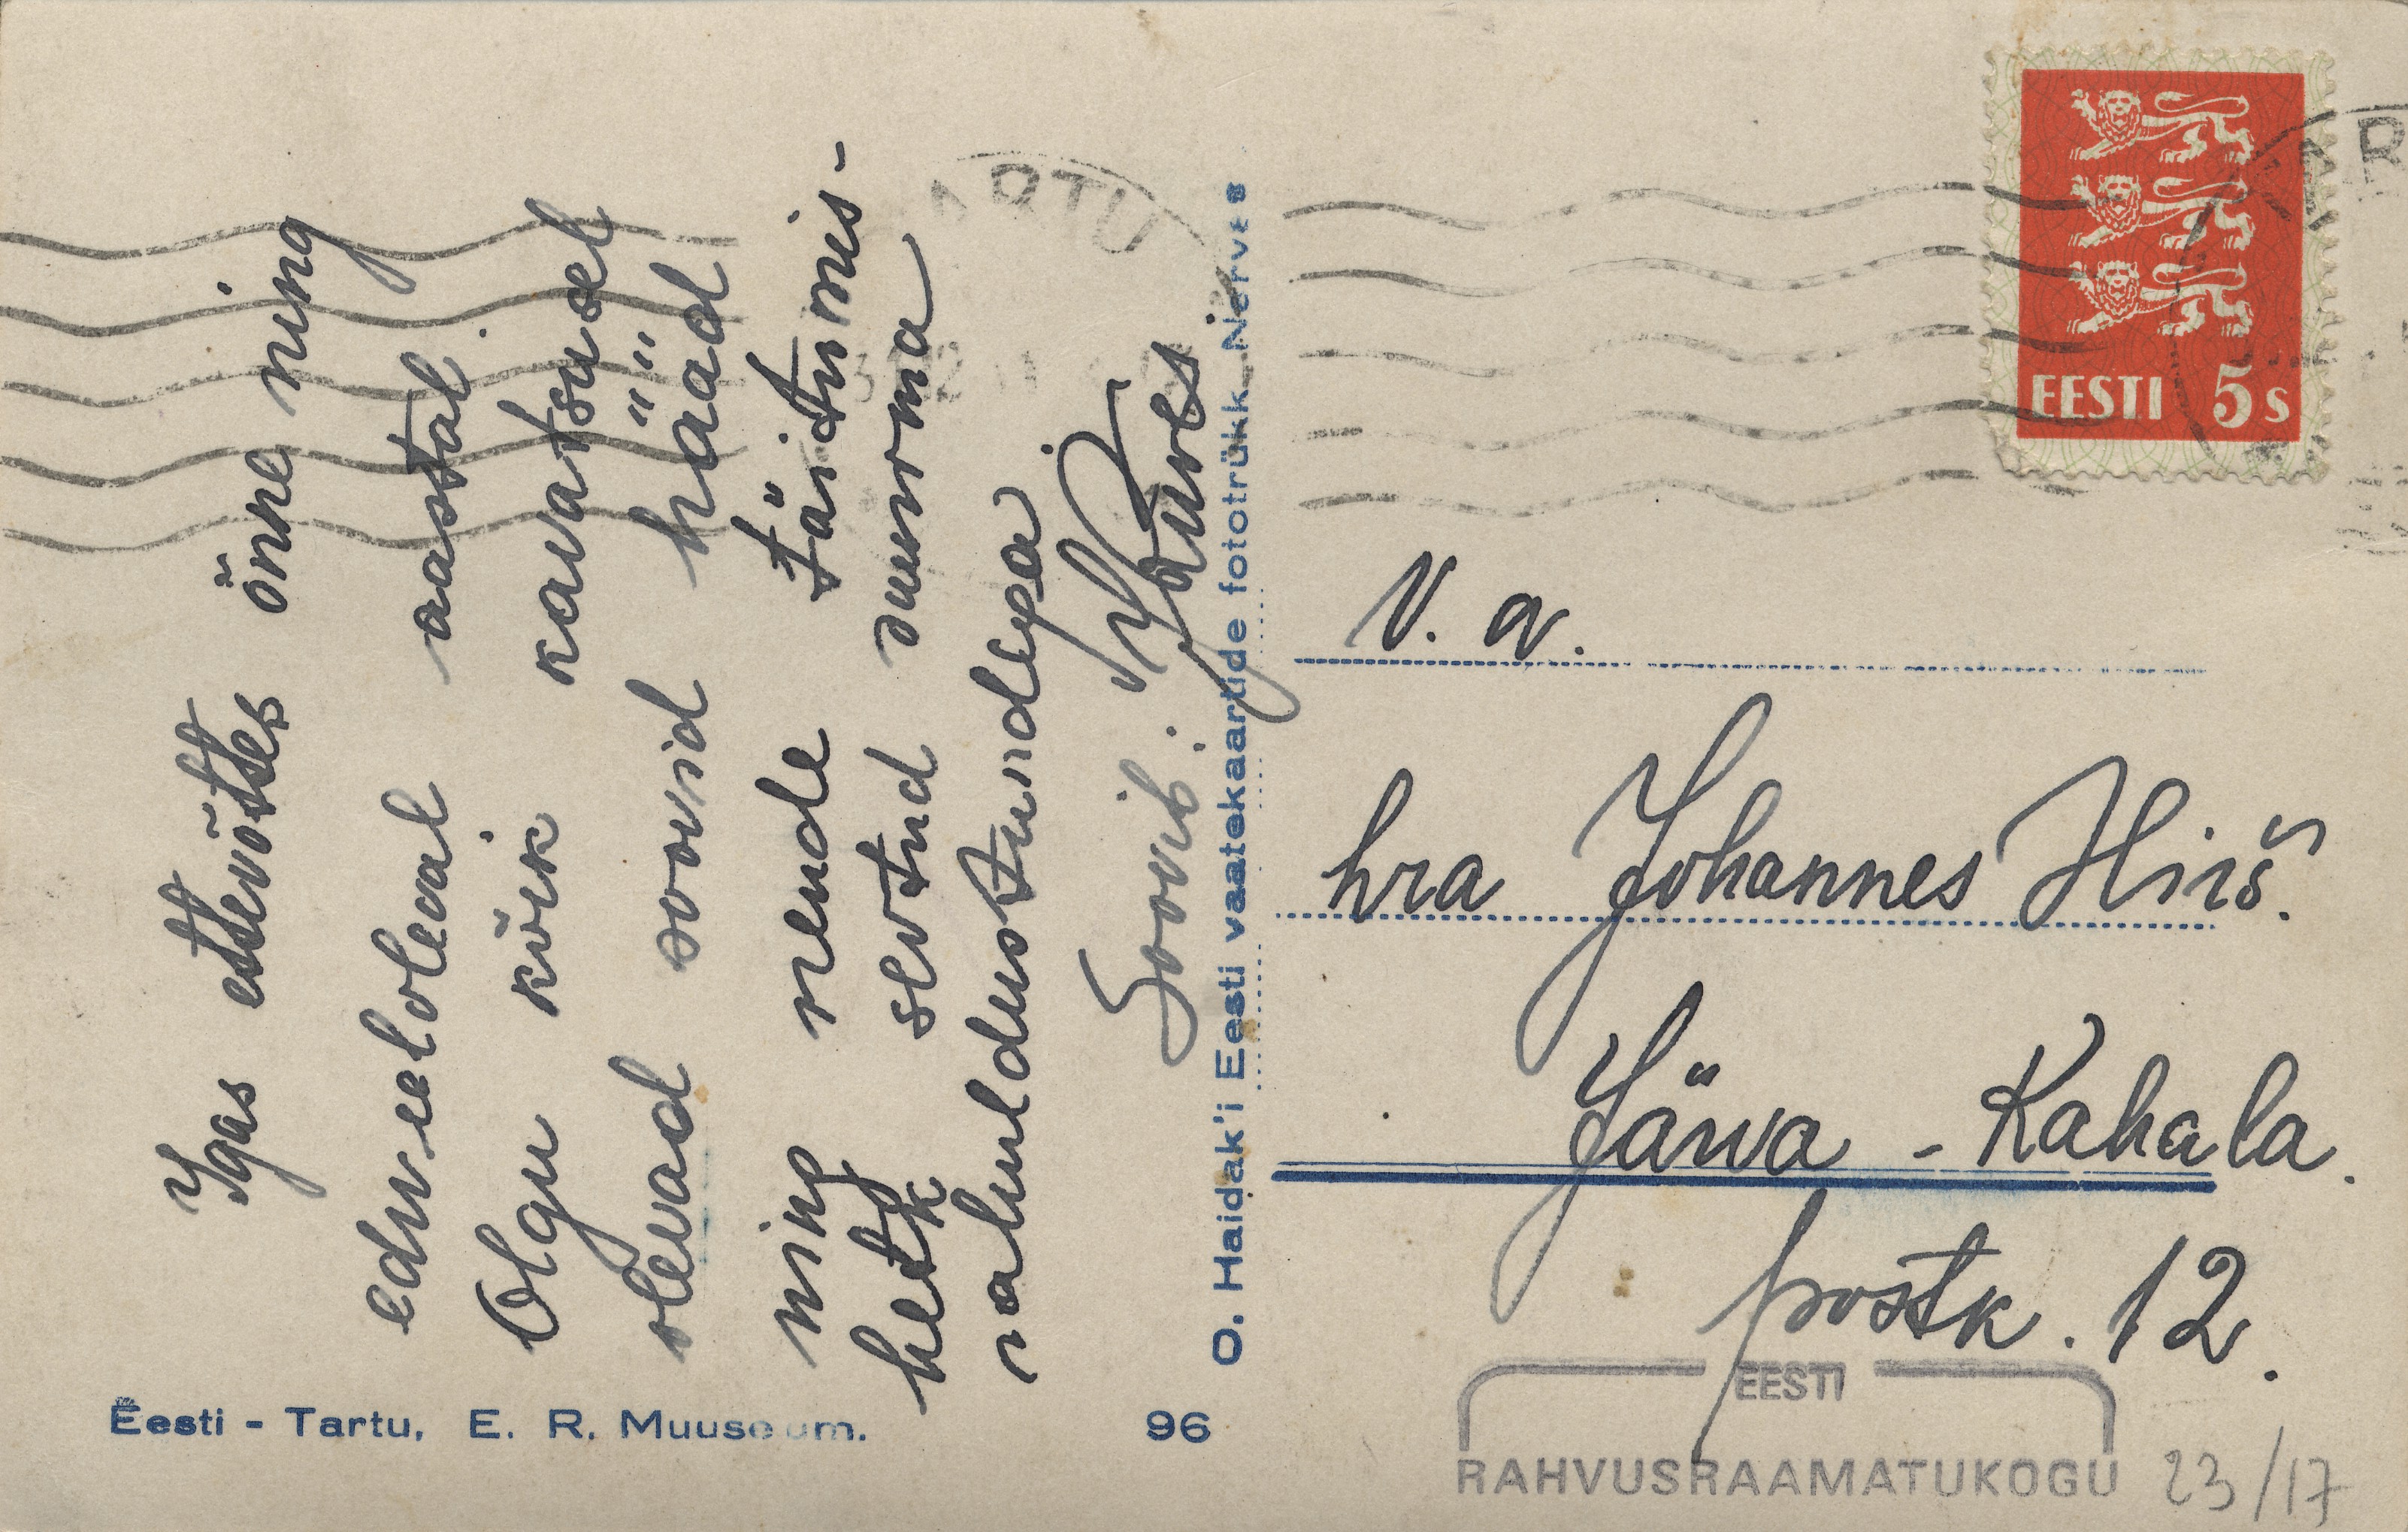 Igas ettevõttes õnne ning
edu eeloleval aastal.
Olgu kõik kavatsusel
olevad soovid hääd
ning nende täitumis-
hetk seotud suurima
rahuldustundega
Soovib:
O. Haidak'i Eesti vaatekaartide fototrükk Narvas
Eesti - Tartu, E. R. Muuseum.
96
ARTU
EESTI 5 s
V. a.
hra Johannes Hiiš.
Järva - Kahala.
postk. 12.
EESTI
RAHVUSRAAMATUKOGU
23/17